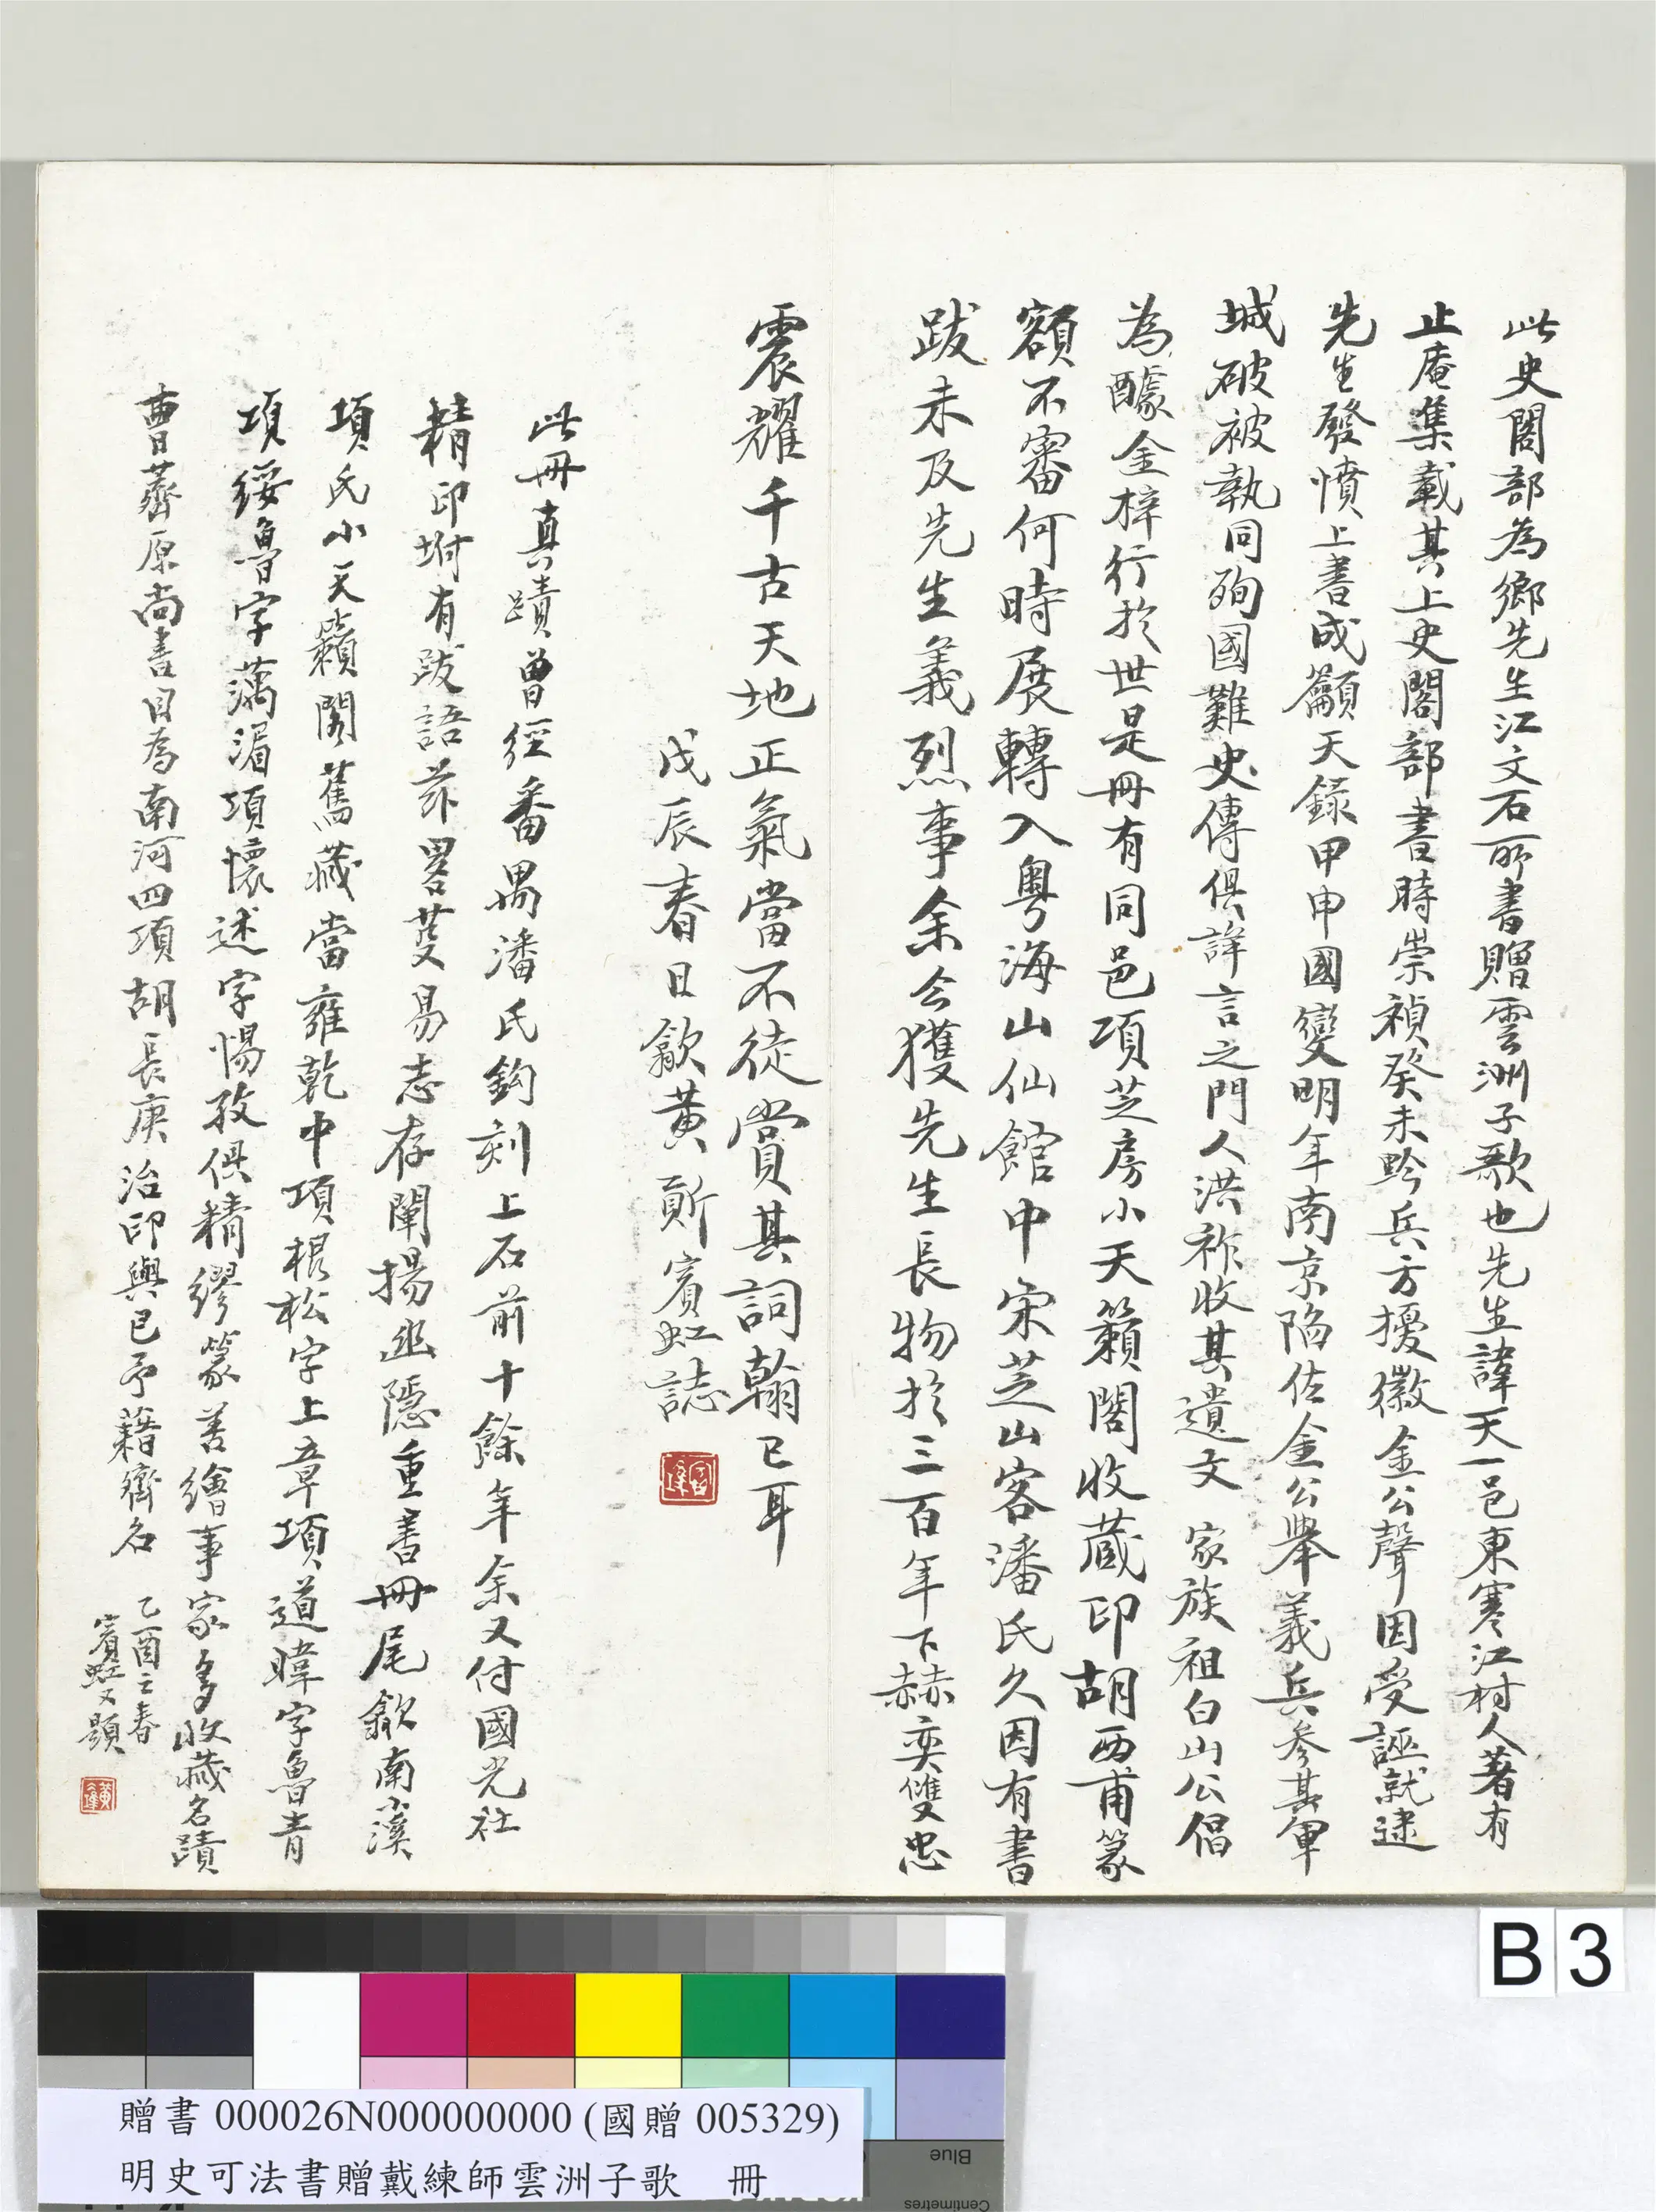 此史閣部為鄉先生江文石所書贈雲洲子歌也先生諱天一邑東寒江村人著有
止庵集載其上史閣部書時崇禎癸未黔兵方擾徽金公聲因受誣就逮
先生發憤上書成籲天錄甲申國變明年南京陷佐金公舉義兵參其軍
城破被執同殉國難史傳俱詳言之門人洪祚收其遺文 家族祖白山公倡
為醵金梓行於世是冊有同邑項芝房小天籟閣收藏印胡西甫篆
額不審何時展轉入粵海山仙館中宋芝山客潘氏久因有書
跋未及先生義烈事余今獲先生長物於三百年下赫奕雙忠
震耀千古天地正氣當不徒賞其詞翰已耳
戊辰春日歙黃質賓虹誌
此冊真蹟曾經番禺潘氏鈎刻上石前十餘年余又付國光社
精印坿有跋語茲畧芟易志存闡揚幽隱重書冊尾歙南溪
項氏小天籟閣舊藏當雍乾中項根松字上章項道暐字魯青
項綏魯字蕅湄項懷述字惕孜俱精繆篆善繪事家多收藏名蹟
曹薺原尚書目為南河四項胡長庚治印與巴予藉齊名
乙酉之春
賓虹又題
B 3
贈書 000026N000000000 (國贈 005329)
明史可法書贈戴練師雲洲子歌 冊
Blue
Centimetres